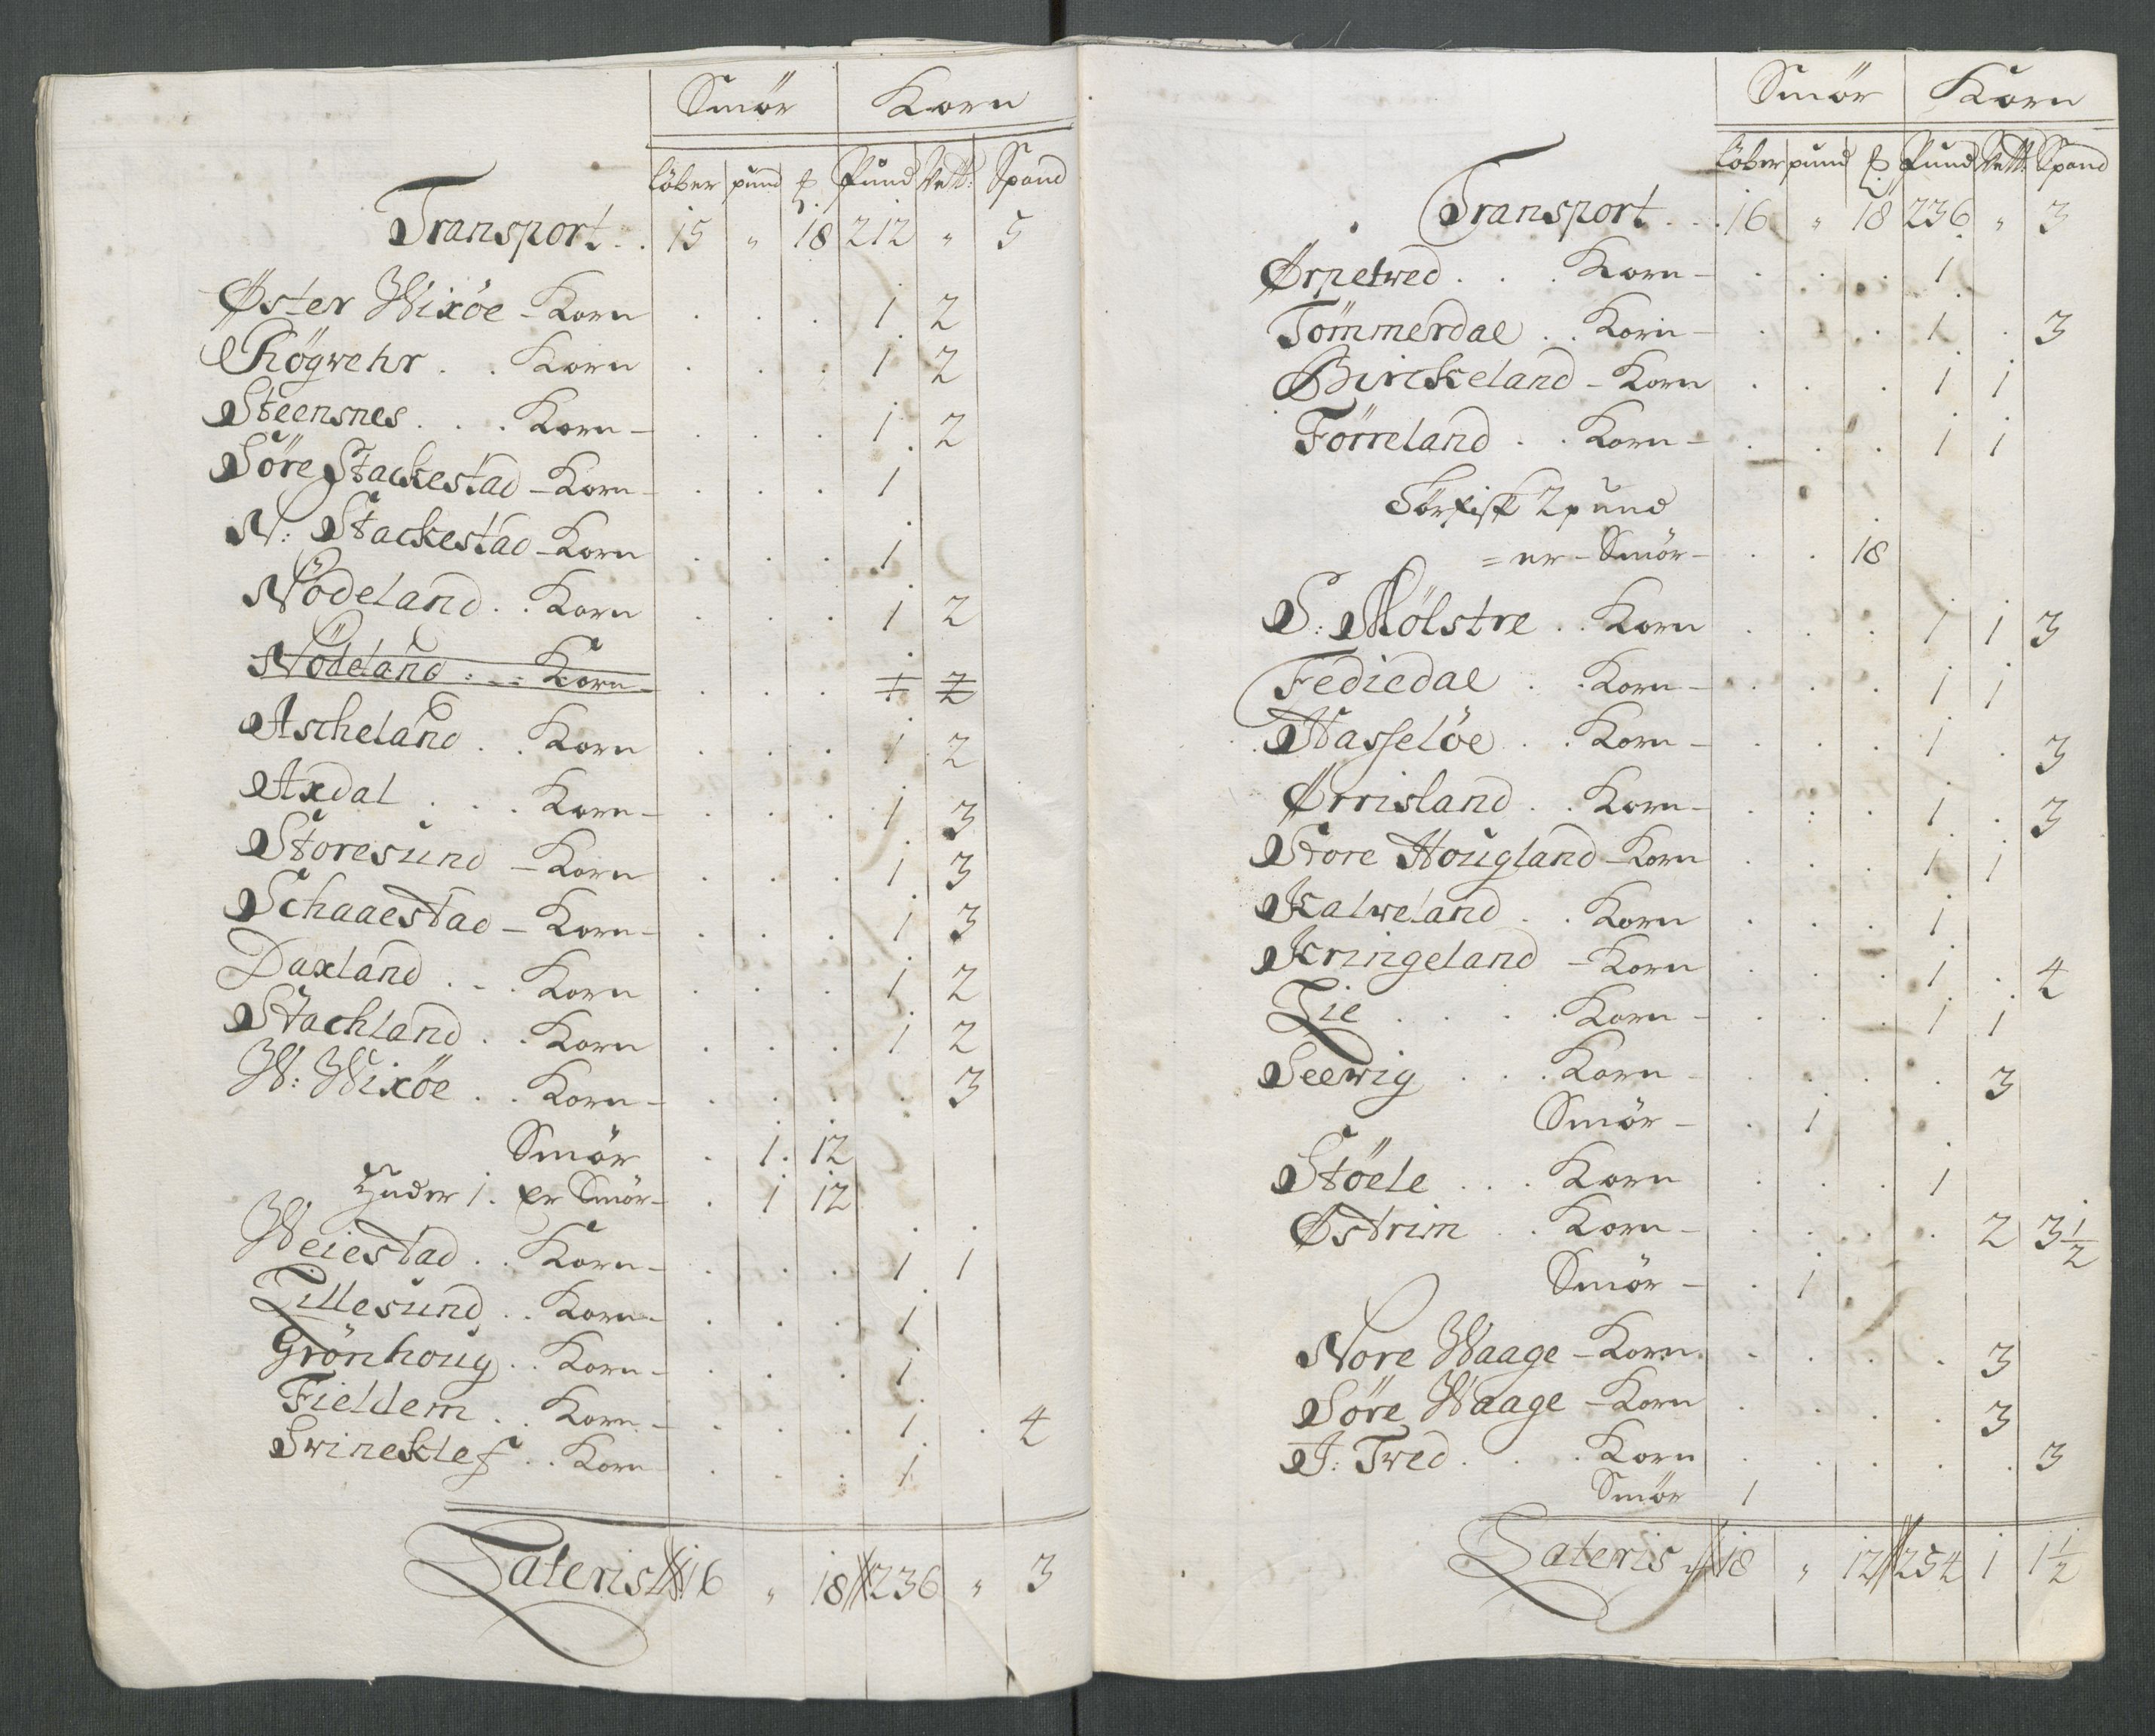 Smör Korn
löber pund ℔ Pund Vett: Spand
Transport . . 15 " 18 212 " 5
Øster Wixöe - Korn . . . 1 2
Rögwehr . . Korn . . . 1 2
Steensnes . . . Korn - . . . 1 2
Söre Stackestad - Korn - . . . 1
N: Stackestad - Korn . . . 1
Nödeland . . Korn . . . 1 2
Nödeland . . . Korn - . . . 1 2
Ascheland . . Korn . . . 1 2
Axdal . . . Korn - . . . 1 3
Storesund - Korn . . . 1 3
Schaaestad - Korn - . . . 1 3
Daxland . . . Korn . . . 1 2
Stachland . . Korn . . . 1 2
W: Wixöe . . Korn - . . . . 3
Smör . 1 12
Huder 1. er Smör - . 1 12
Weiestad . . Korn - . . . 1 1
Lillesund . . Korn - . . . 1
Grönhoug . . Korn - . . . 1
Fieldem . . Korn - . . . 1 . 4
Svineklef . . Korn . . . 1
Lateris 16 " 18 236 " 3
Smör Korn
löber pund ℔ Pund Vett: Spand
Transport . . . 16 " 18 236 " 3
Ørpetwed . . . Korn - . . . 1
Tömmerdal . . Korn - . . . 1 . 3
Birckeland - Korn . . . 1 1
Förreland . . Korn - . . . 1 1
Törfisk 2 pund
= er - Smör - . . 18
S: Mölstre . . Korn . . . 1 1 3
Fediedal . . Korn - . . . 1 1
Hasselöe . . Korn - . . . 1 . 3
Ørrisland . . Korn - . . . 1 . 3
Store Hougland - Korn . . . 1 1
Kalweland . . Korn . . . 1
Kringeland - Korn . . . 1 . 4
Lie . . . . Korn - . . . 1 1
Seewig . . . Korn - . . . . 3
Smör - . 1
Stöele . . . Korn . . . 1
Østrim . . Korn - . . . . 2 3 1/2
Smör - . 1
Nore Waage - Korn . . . . 3
Söre Waage - Korn . . . . 3
J: Twed . . . Korn . . . . . 3
Smör 1
Lateris 18 " 12 254 1 1 1/2